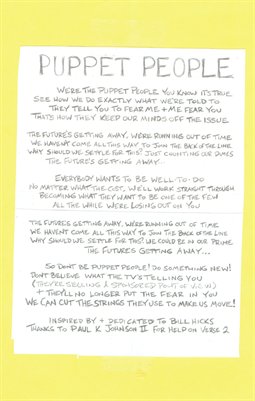 PUPPET PEOPLE
WE'RE THE PUPPET PEOPLE YOU KNOW IT'S TRUE
SEE HOW WE DO EXACTLY WHAT WE'RE TOLD TO
THEY TELL YOU TO FEAR ME + ME FEAR YOU
THAT'S HOW THEY KEEP OUR MINDS OFF THE ISSUE
THE FUTURE'S GETTING AWAY, WE'RE RUNNING OUT OF TIME
WE HAVEN'T COME ALL THIS WAY TO JOIN THE BACK OF THE LINE
WHY SHOULD WE SETTLE FOR THIS? JUST COUNTING OUR DIMES
THE FUTURE'S GETTING AWAY...
EVERYBODY WANTS TO BE WELL-TO-DO
NO MATTER WHAT THE COST, WE'LL WORK STRAIGHT THROUGH
BECOMING WHAT THEY WANT TO BE ONE OF THE FEW
ALL THE WHILE WE'RE LOSING OUT ON YOU
THE FUTURE'S GETTING AWAY, WE'RE RUNNING OUT OF TIME
WE HAVEN'T COME ALL THIS WAY TO JOIN THE BACK OF THE LINE
WHY SHOULD WE SETTLE FOR THIS? WE COULD BE IN OUR PRIME
THE FUTURE'S GETTING AWAY...
SO DON'T BE PUPPET PEOPLE! DO SOMETHING NEW!
DON'T BELIEVE WHAT THE TV'S TELLING YOU
(THEY'RE SELLING A SPONSORED POINT OF VIEW)
+ THEY'LL NO LONGER PUT THE FEAR IN YOU
WE CAN CUT THE STRINGS THEY USE TO MAKE US MOVE!
INSPIRED BY + DEDICATED TO BILL HICKS
THANKS TO PAUL K JOHNSON II FOR HELP ON VERSE 2